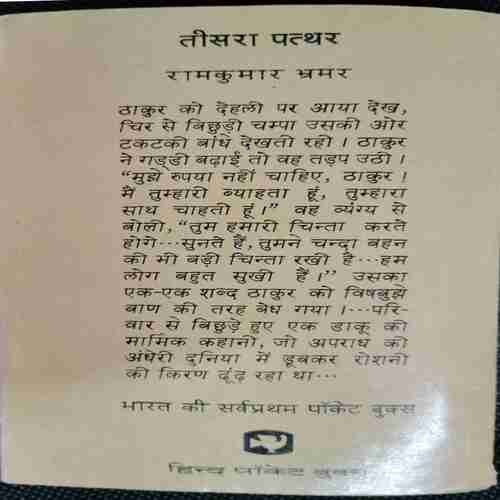 तीसरा पत्थर
रामकुमार भ्रमर
ठाकुर को देहली पर आया देख,
चिर से बिछुड़ी चम्पा उसकी ओर
टकटकी बांधे देखती रही । ठाकुर
ने गड्डी बढ़ाई तो वह तड़प उठी ।
“मुझे रुपया नहीं चाहिए, ठाकुर !
मैं तुम्हारी ब्याहता हूं, तुम्हारा
साथ चाहती हूं ।” वह व्यंग्य से
बोली, “तुम हमारी चिन्ता करते
होगे···सुनते हैं, तुमने चन्दा बहन
की भी बड़ी चिन्ता रखी है···हम
लोग बहुत सुखी हैं ।” उसका
एक-एक शब्द ठाकुर को विषबुझे
बाण की तरह बेध गया ।···परि-
वार से बिछुड़े हुए एक डाकू की
मार्मिक कहानी, जो अपराध की
अंधेरी दुनिया में डूबकर रोशनी
की किरण ढूंढ़ रहा था···
भारत की सर्वप्रथम पॉकेट बुक्स
हिन्द पॉकेट बुक्स